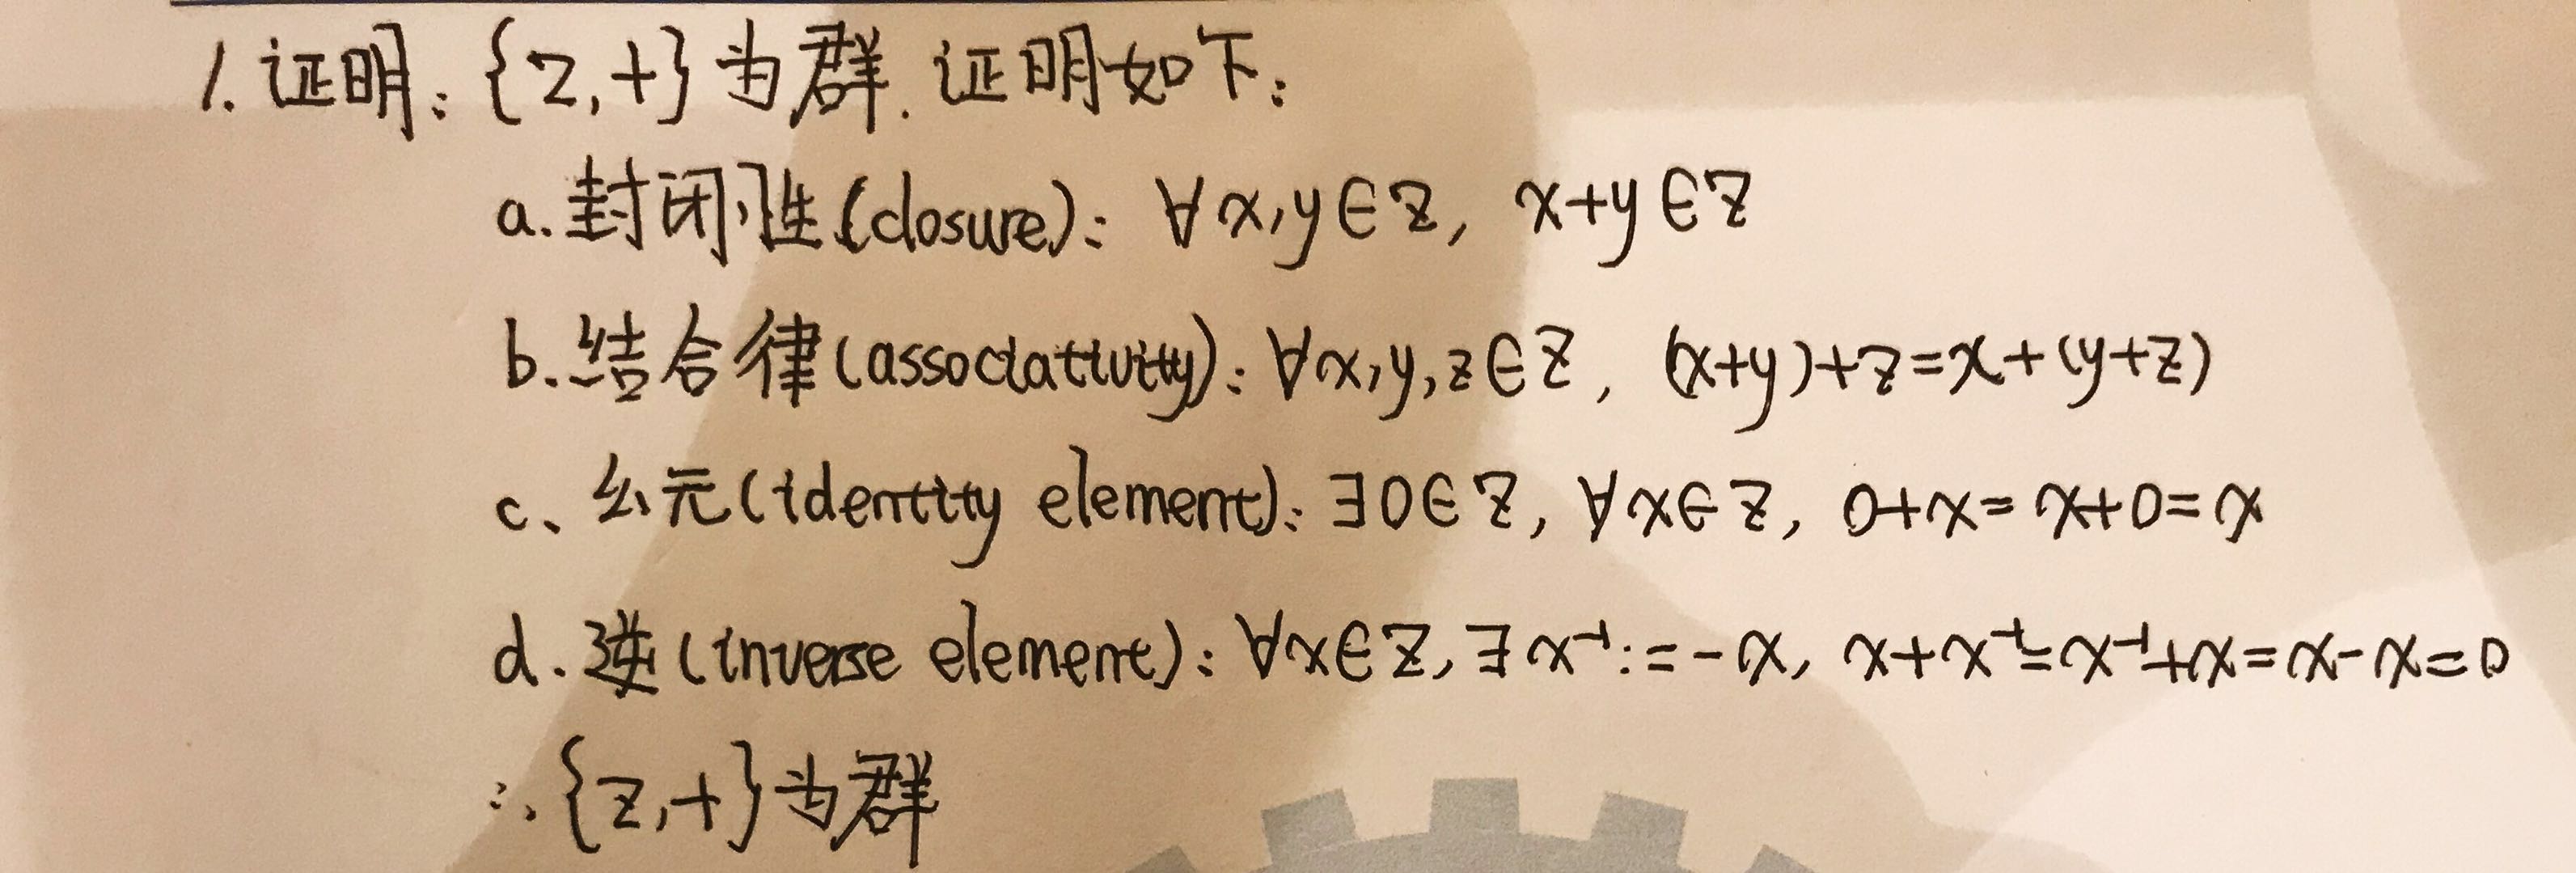 1. 证明: {Z,+}为群. 证明如下:
a. 封闭性 (closure): ∀x,y∈Z, x+y∈Z
b. 结合律 (associativity): ∀x,y,z∈Z, (x+y)+z=x+(y+z)
c、幺元 (identity element): ∃0∈Z, ∀x∈Z, 0+x=x+0=x
d. 逆 (inverse element): ∀x∈Z, ∃x⁻¹:=-x, x+x⁻¹=x⁻¹+x=x-x=0
∴ {Z,+}为群